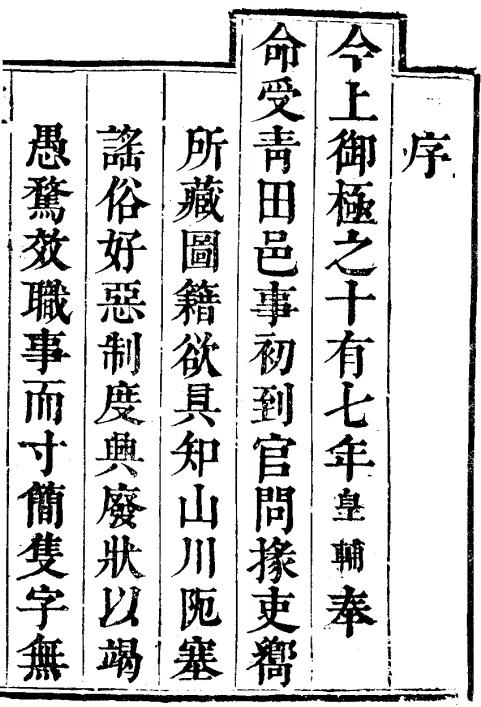 序
今上御極之十有七年皇輔奉
命受青田邑事初到官問掾吏嚮
所藏圖籍欲具知山川阨塞
謠俗好惡制度興廢狀以竭
愚騖效職事而寸簡隻字無